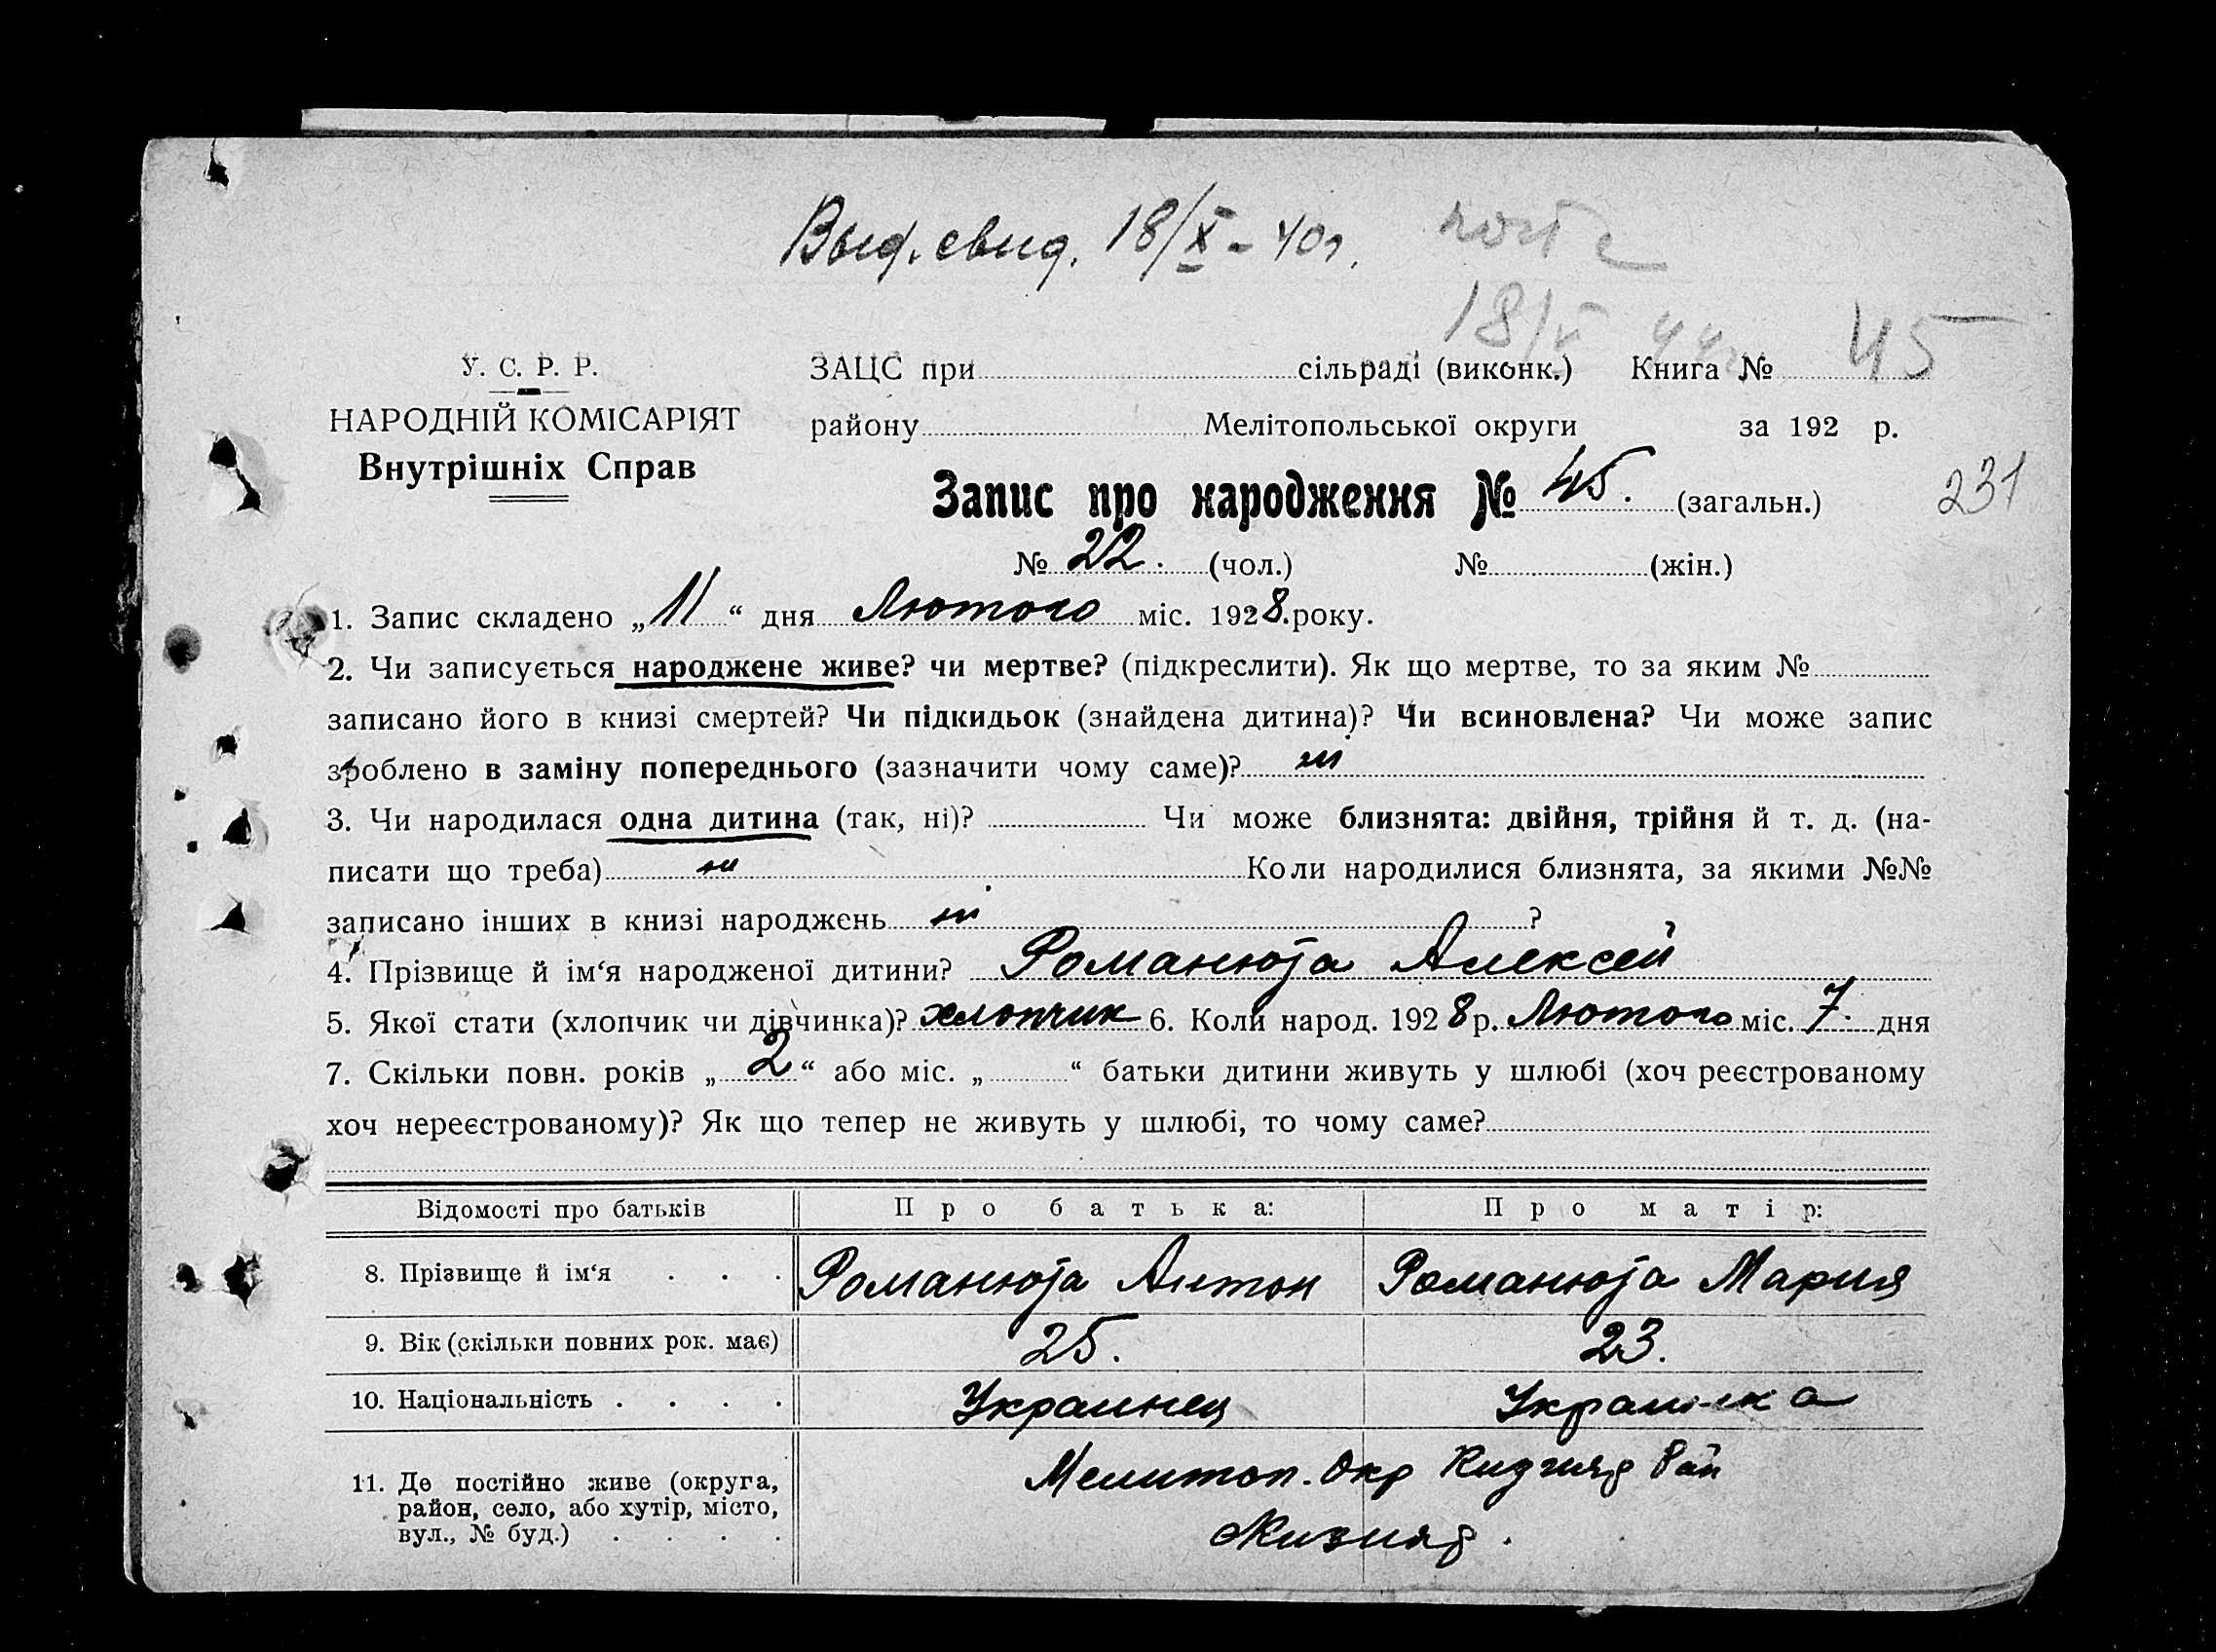 Выд. свид. 18/X - 40 г.
18/V 44
У. С. Р. Р.
НАРОДНІЙ КОМІСАРІЯТ
Внутрішніх Справ
ЗАЦС при сільраді (виконк.) Книга № 45
району Мелітопольської округи за 192 р.
Запис про народження № 45. (загальн.) 231
№ 22. (чол.) № (жін.)
1. Запис складено „11“ дня Лютого міс. 1928. року.
2. Чи записується народжене живе? чи мертве? (підкреслити). Як що мертве, то за яким №
записано його в книзі смертей? Чи підкидьок (знайдена дитина)? Чи всиновлена? Чи може запис
зроблено в заміну попереднього (зазначити чому саме)? ні
3. Чи народилася одна дитина (так, ні)? Чи може близнята: двійня, трійня й т. д. (на-
писати що треба) ні Коли народилися близнята, за якими №№
записано інших в книзі народжень ні ?
4. Прізвище й ім‘я народженої дитини? Романюга Алексей
5. Якої стати (хлопчик чи дівчинка)? хлопчик 6. Коли народ. 1928 р. Лютого міс. 7. дня
7. Скільки повн. років „2“ або міс. „ “ батьки дитини живуть у шлюбі (хоч реєстрованому
хоч нереєстрованому)? Як що тепер не живуть у шлюбі, то чому саме?
Відомості про батьків Про батька: Про матір:
8. Прізвище й ім‘я . . . Романюга Антон Романюга Мария
9. Вік (скільки повних рок. має) 25. 23.
10. Національність . . . . Украинец Украинка
11. Де постійно живе (округа,
район, село, або хутір, місто,
вул., № буд.) . . . .
Мелитоп. Окр Рай